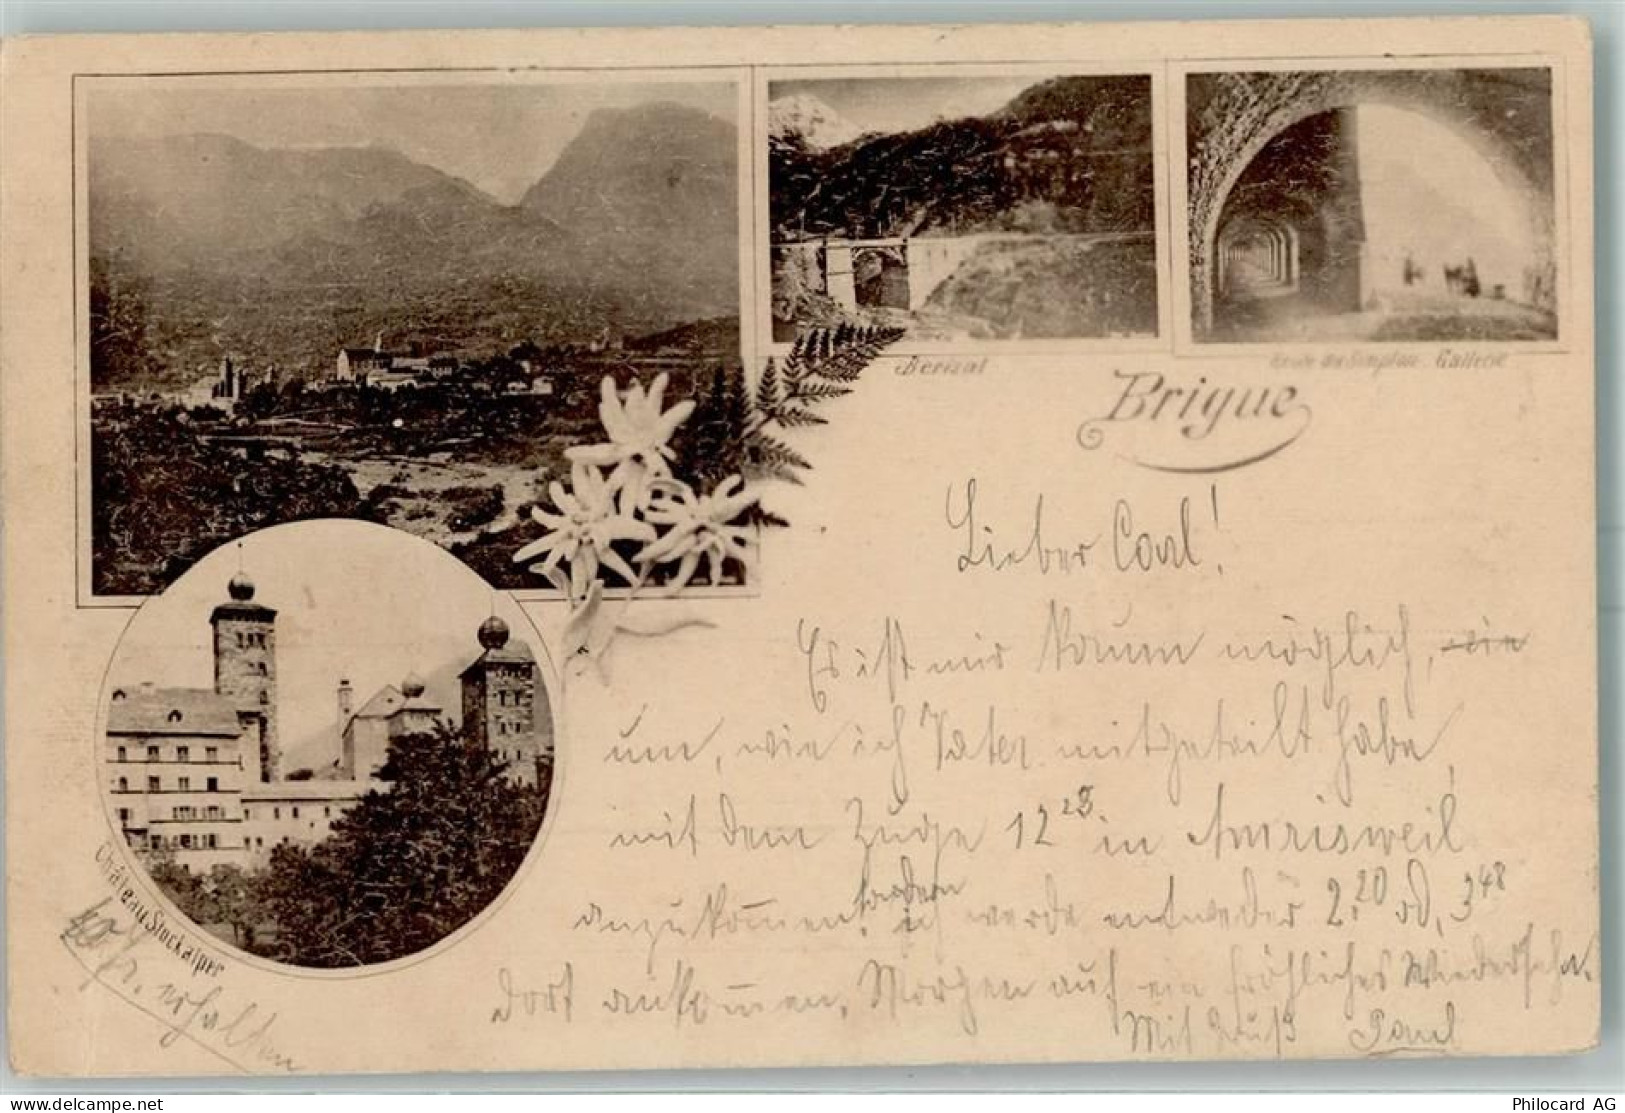 Berisal
Route du Simplon. Gallerie
Brigue
Château Stockalper
Lieber Carl!
Es ist mir kaum möglich,
um, wie ich Vater mitgeteilt habe,
mit dem Zuge 12 23 in Amrisweil
anzukommen, sondern ich werde entweder 2.20 od. 3 48
dort ankommen. Morgen auf ein fröhliches Wiedersehn.
Mit Gruß Paul
erhalten
Philocard AG